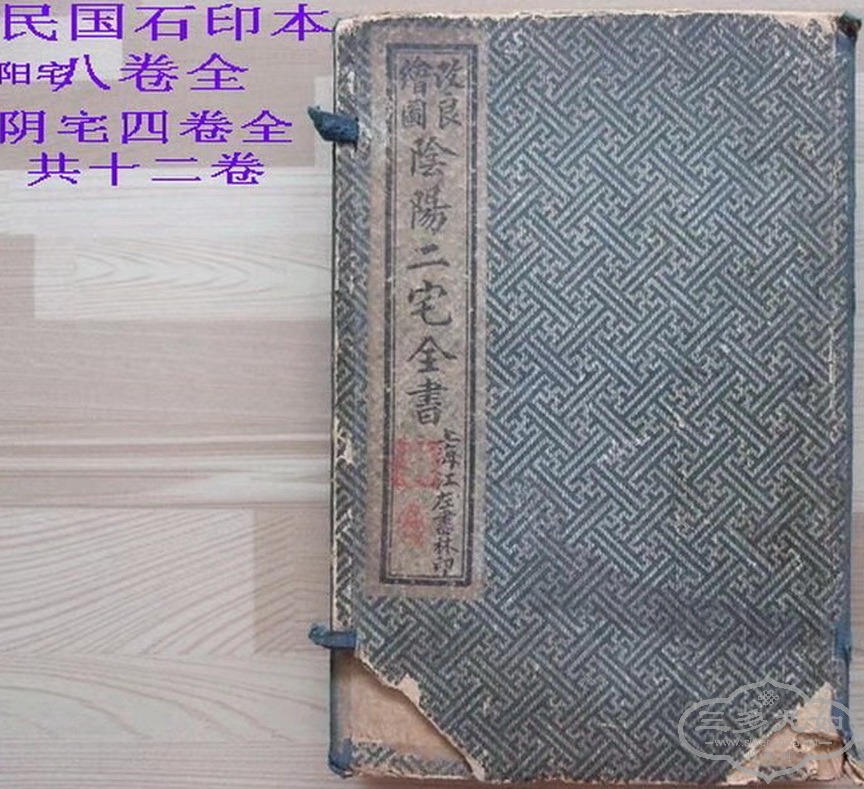 民国石印本
阳宅八卷全
阴宅四卷全
共十二卷
改良
繪圖
陰陽二宅全書
上海江左書林印